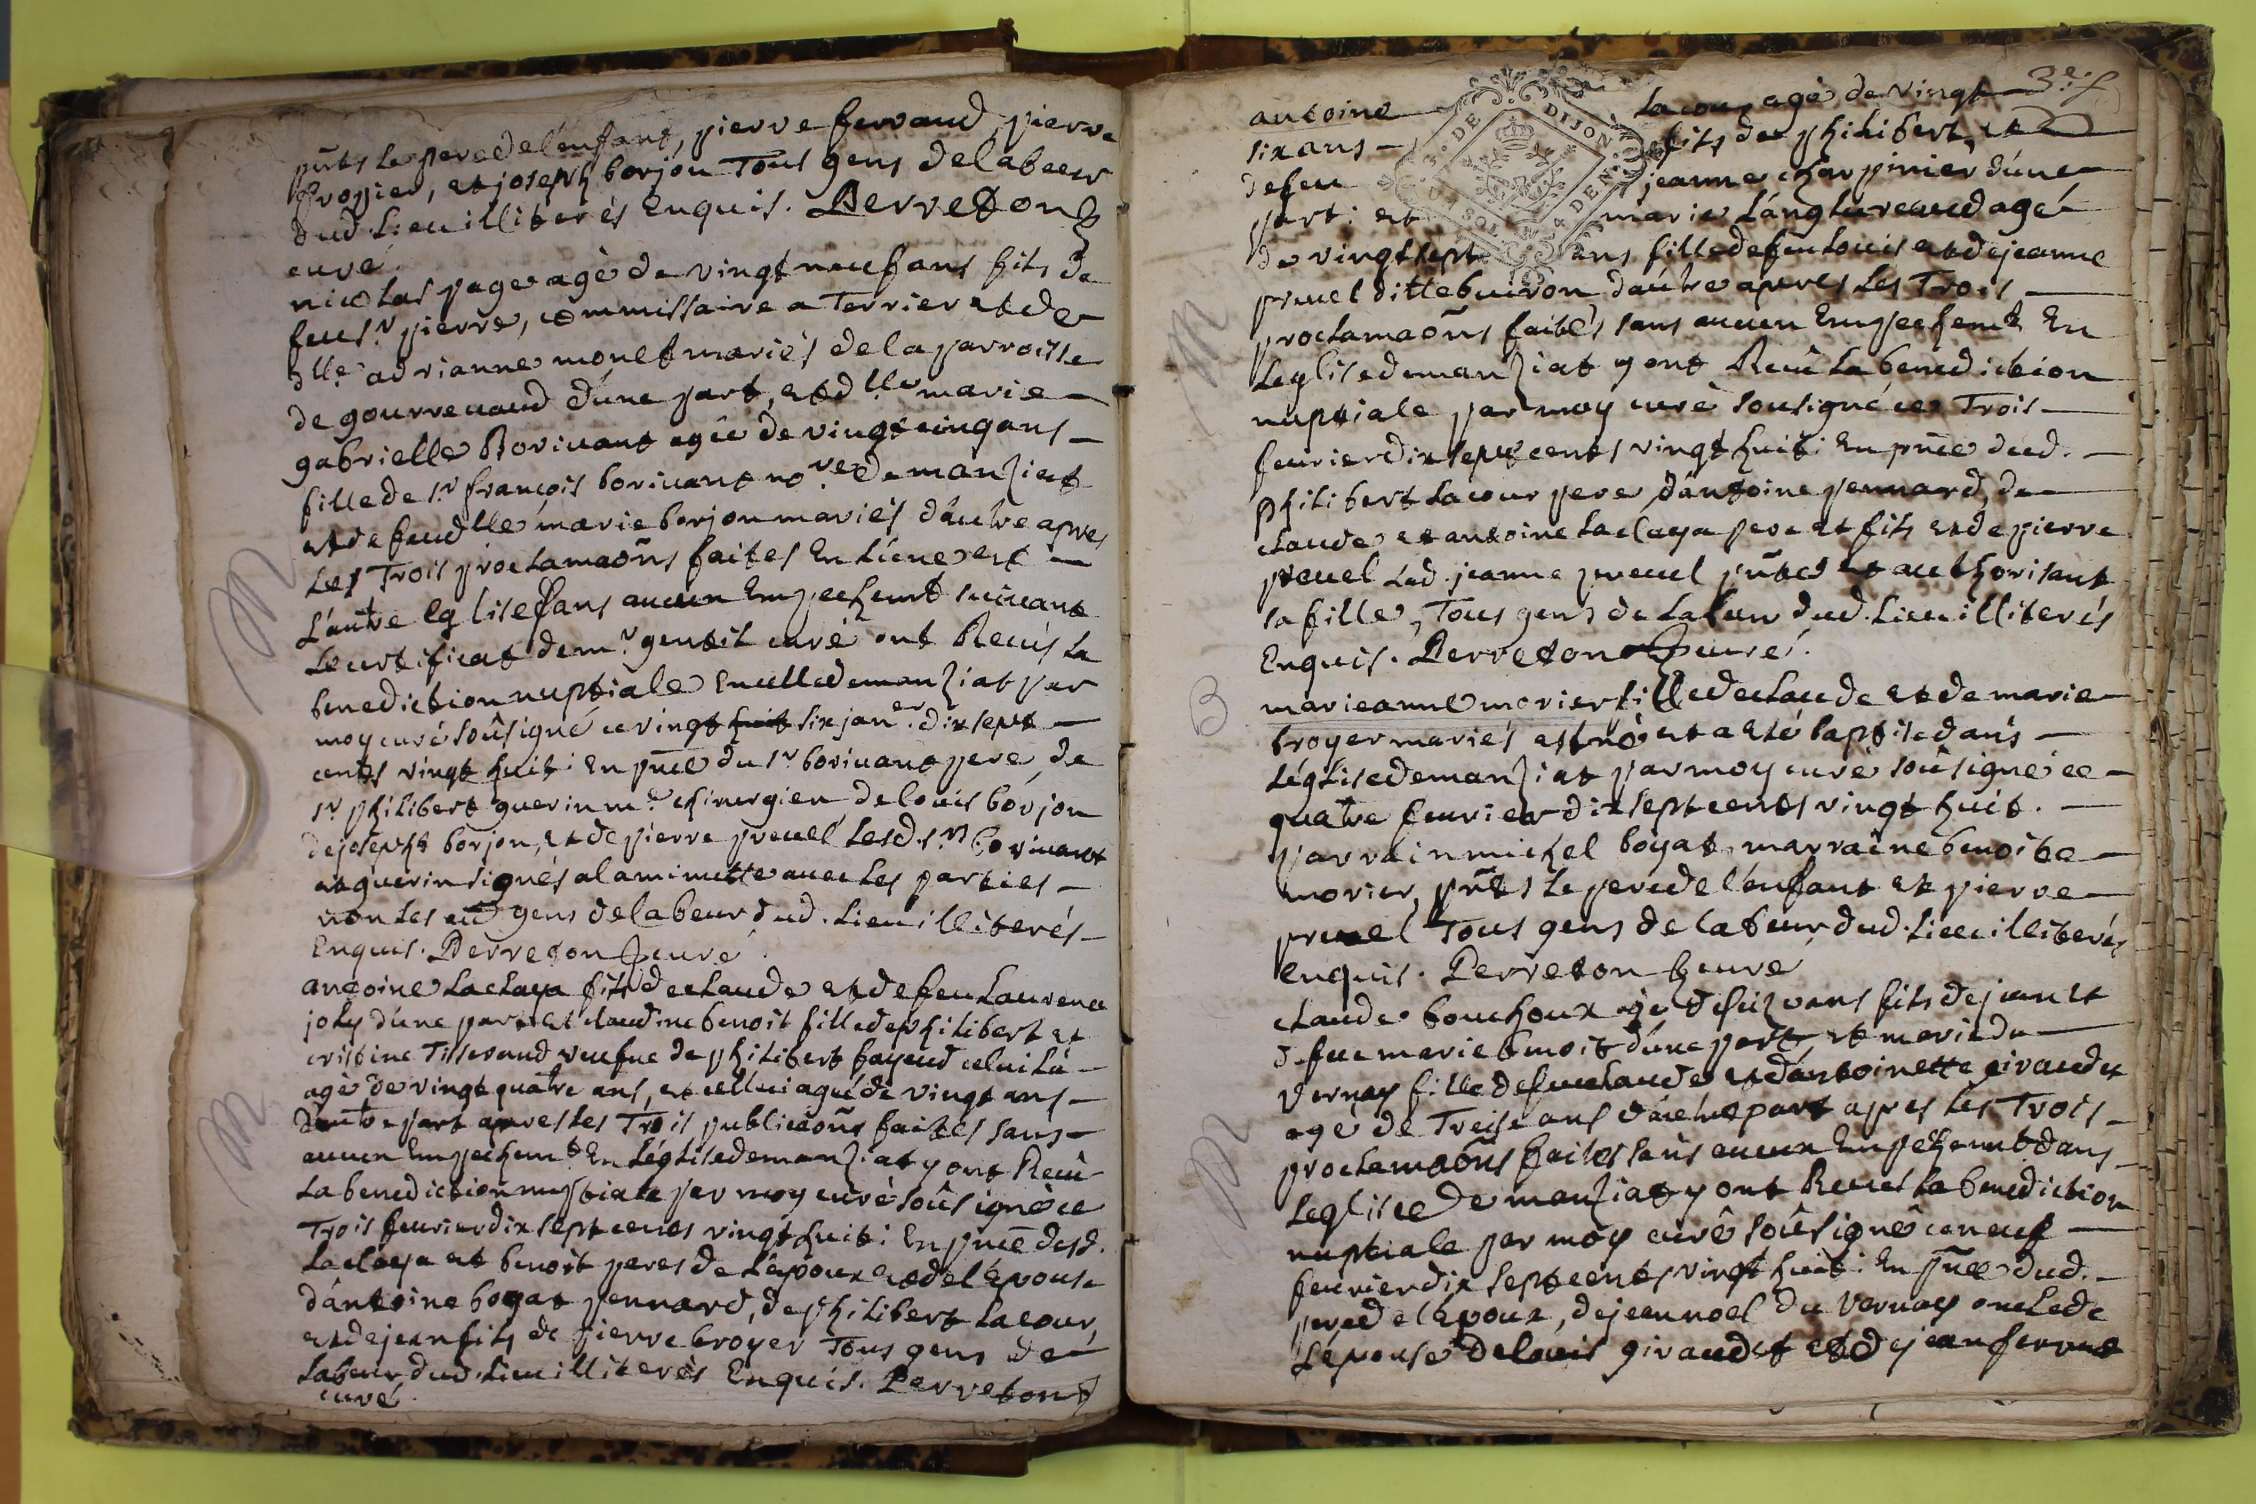 pñts le pere de lenfant, pierre ferraud, pierre
broyier, et joseph borjon Tous gens de labeur
dud. Lieu illiterés Enquis. Perreton
curé.
M
nicolas page agé de vingt neuf ans fils de
feu sr. pierre, commissaire a Terrier et de
dlle adrianne monet mariés de la parroisse
de gourrevaud d'une part, et dlle marie
gabrielle Borivant agée de vingt cinq ans
fille de sr francois borivant nore. de manziat
et de feu dlle marie borjon mariés d'autre apres
Les Trois proclamaõns faites En L'une et
L'autre Eglise sans aucun Empechemt suivant
Le certificat de mr. gentil curé ont Recus La
benediction nuptiale En celle de manziat par
moy curé soûsigné ce vingt huit six janer. dix sept
cents vingt huit: En pñce du sr borivant pere, de
sr philibert guerin me. chirurgien de louis borjon
de joseph borjon, et de pierre preuel Lesd. srs Borivant
et guerin signés a la minutte avec Les parties
non Les aud gens de labeur dud. Lieu illiterés
Enquis. Perreton curé
M
antoine Laclaya fils de claude et de feu Laurence
joly d'une part et claudine benoit fille de philibert et
cristine Tisserand veufue de philibert fayeud celui La
agé de vingt quatre ans, et celleci agée de vingt ans
d'autre part apres Les Trois publicaõns faites sans
aucun Empechemt. En Léglise de manziat y ont Recû
La benediction nuptiale par moy curé soûsigné ce
Trois feurier dix sept cents vingt huit: En pñce desd.
Laclaya et benoit peres de Lepoux et de l'Epouse
d'antoine boyat pennard, de philibert Lacour,
et de jean fils de pierre broyer Tous gens de
Labeur dud. Lieu illiterés Enquis. Perreton
curé.
3e. f
M
antoine Lacour agé de vingt
six ans fils de philibert et
de feu jeanne charpinier d'une
part: et marie Langlureaud agé
de vingt sept ans fille de feu Louis et de jeanne
preuel ditte buiron d'autre apres Les Trois
proclamaõns faites sans aucun Empechemt En
Leglise de manziat y ont Recû La benediction
nuptiale par moy curé soûsigné ce Trois
feurier dix sept cents vingt huit: En pñce dud.
philibert Lacour pere, d'antoine pennard, de
claude et antoine Laclaya pere et fils et de pierre
preuel Lad. jeanne preuel pñtes et authorisant
sa fille, Tous gens de Labeur dud. Lieu illiterés
Enquis. Perreton curé.
B
marieanne morier fille de claude et de marie
broyer mariés est né et a eté baptisé dans
Léglise de manziat par moy curé soûsigné ce
quatre feurier dix sept cents vingt huit.
parrain michel boyat, marraine benoite
morier, pñts le pere de l'enfant et pierre
preuel Tous gens de labeur dud. Lieu illiterés
enquis. Perreton curé
M
claude bouchoux agé de seize ans fils de jean et
de feue marie benoit d'une part, et marie du
vernay fille de feu claude et d'antoinette giraudet
agé de Treise ans d'autre part apres Les Trois
proclamaõns faites sans aucun Empechemt dans
Leglise de manziat y ont Recus La benediction
nuptiale par moy curé soûsigné ce neuf
feurier dix sept cents vingt huit: En pñce dud.
pere de l'Epoux, de jean noel du vernay oncle de
L'épouse de louis giraudet et de jean ferrand
DE DIJON
4 DEN.
SOLS